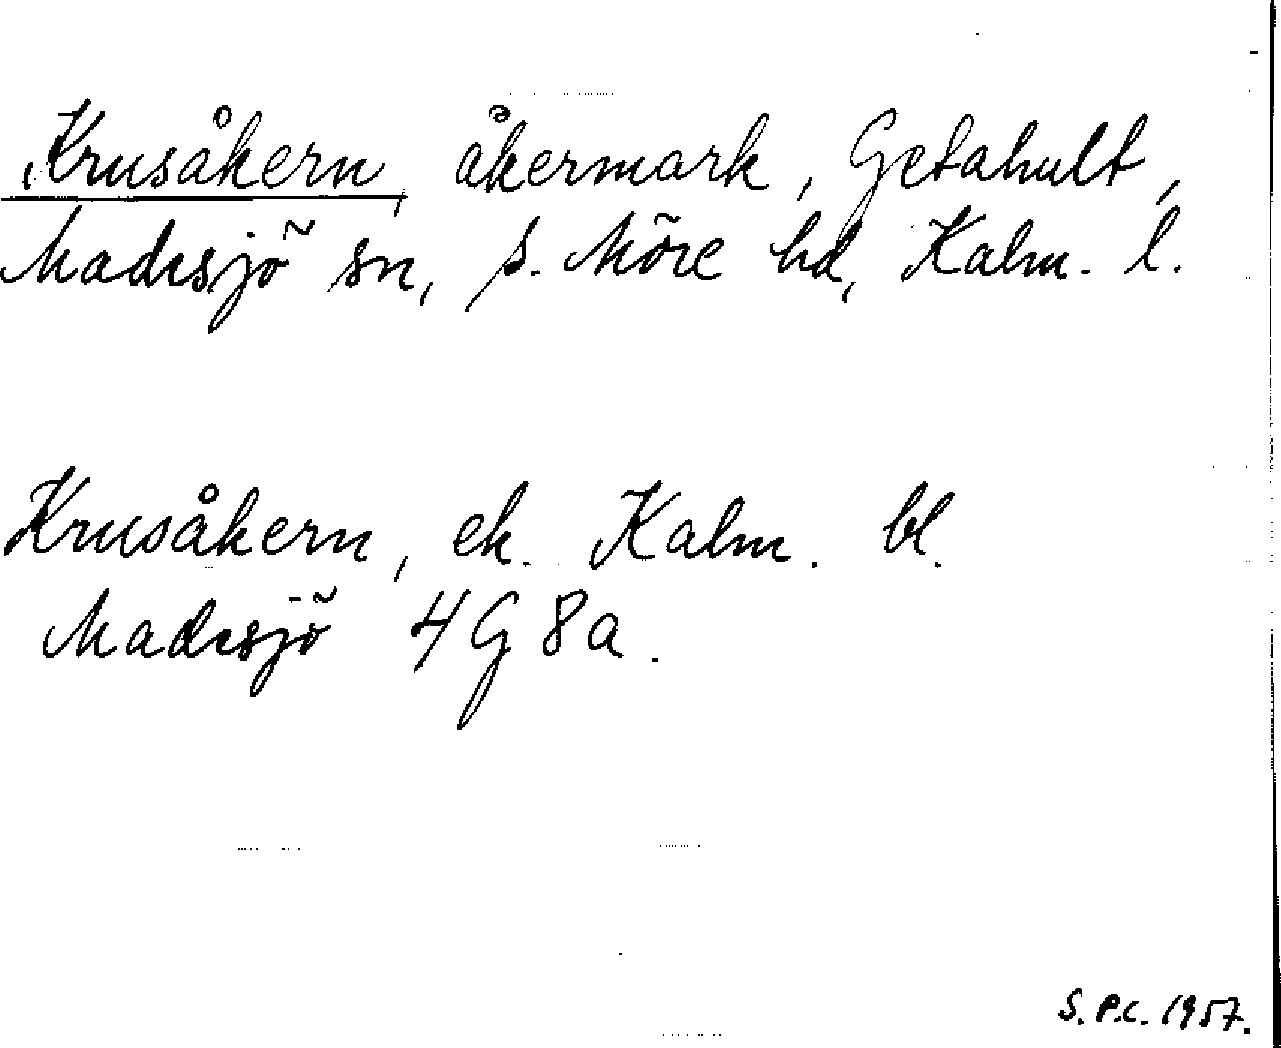 Krusåkern, åkermark, Getahult,
Madesjö sn, S. Möre hd, Kalm. l.
Krusåkern, ek. Kalm. bl.
Madesjö 4G 8a.
S.P.C. 1957.